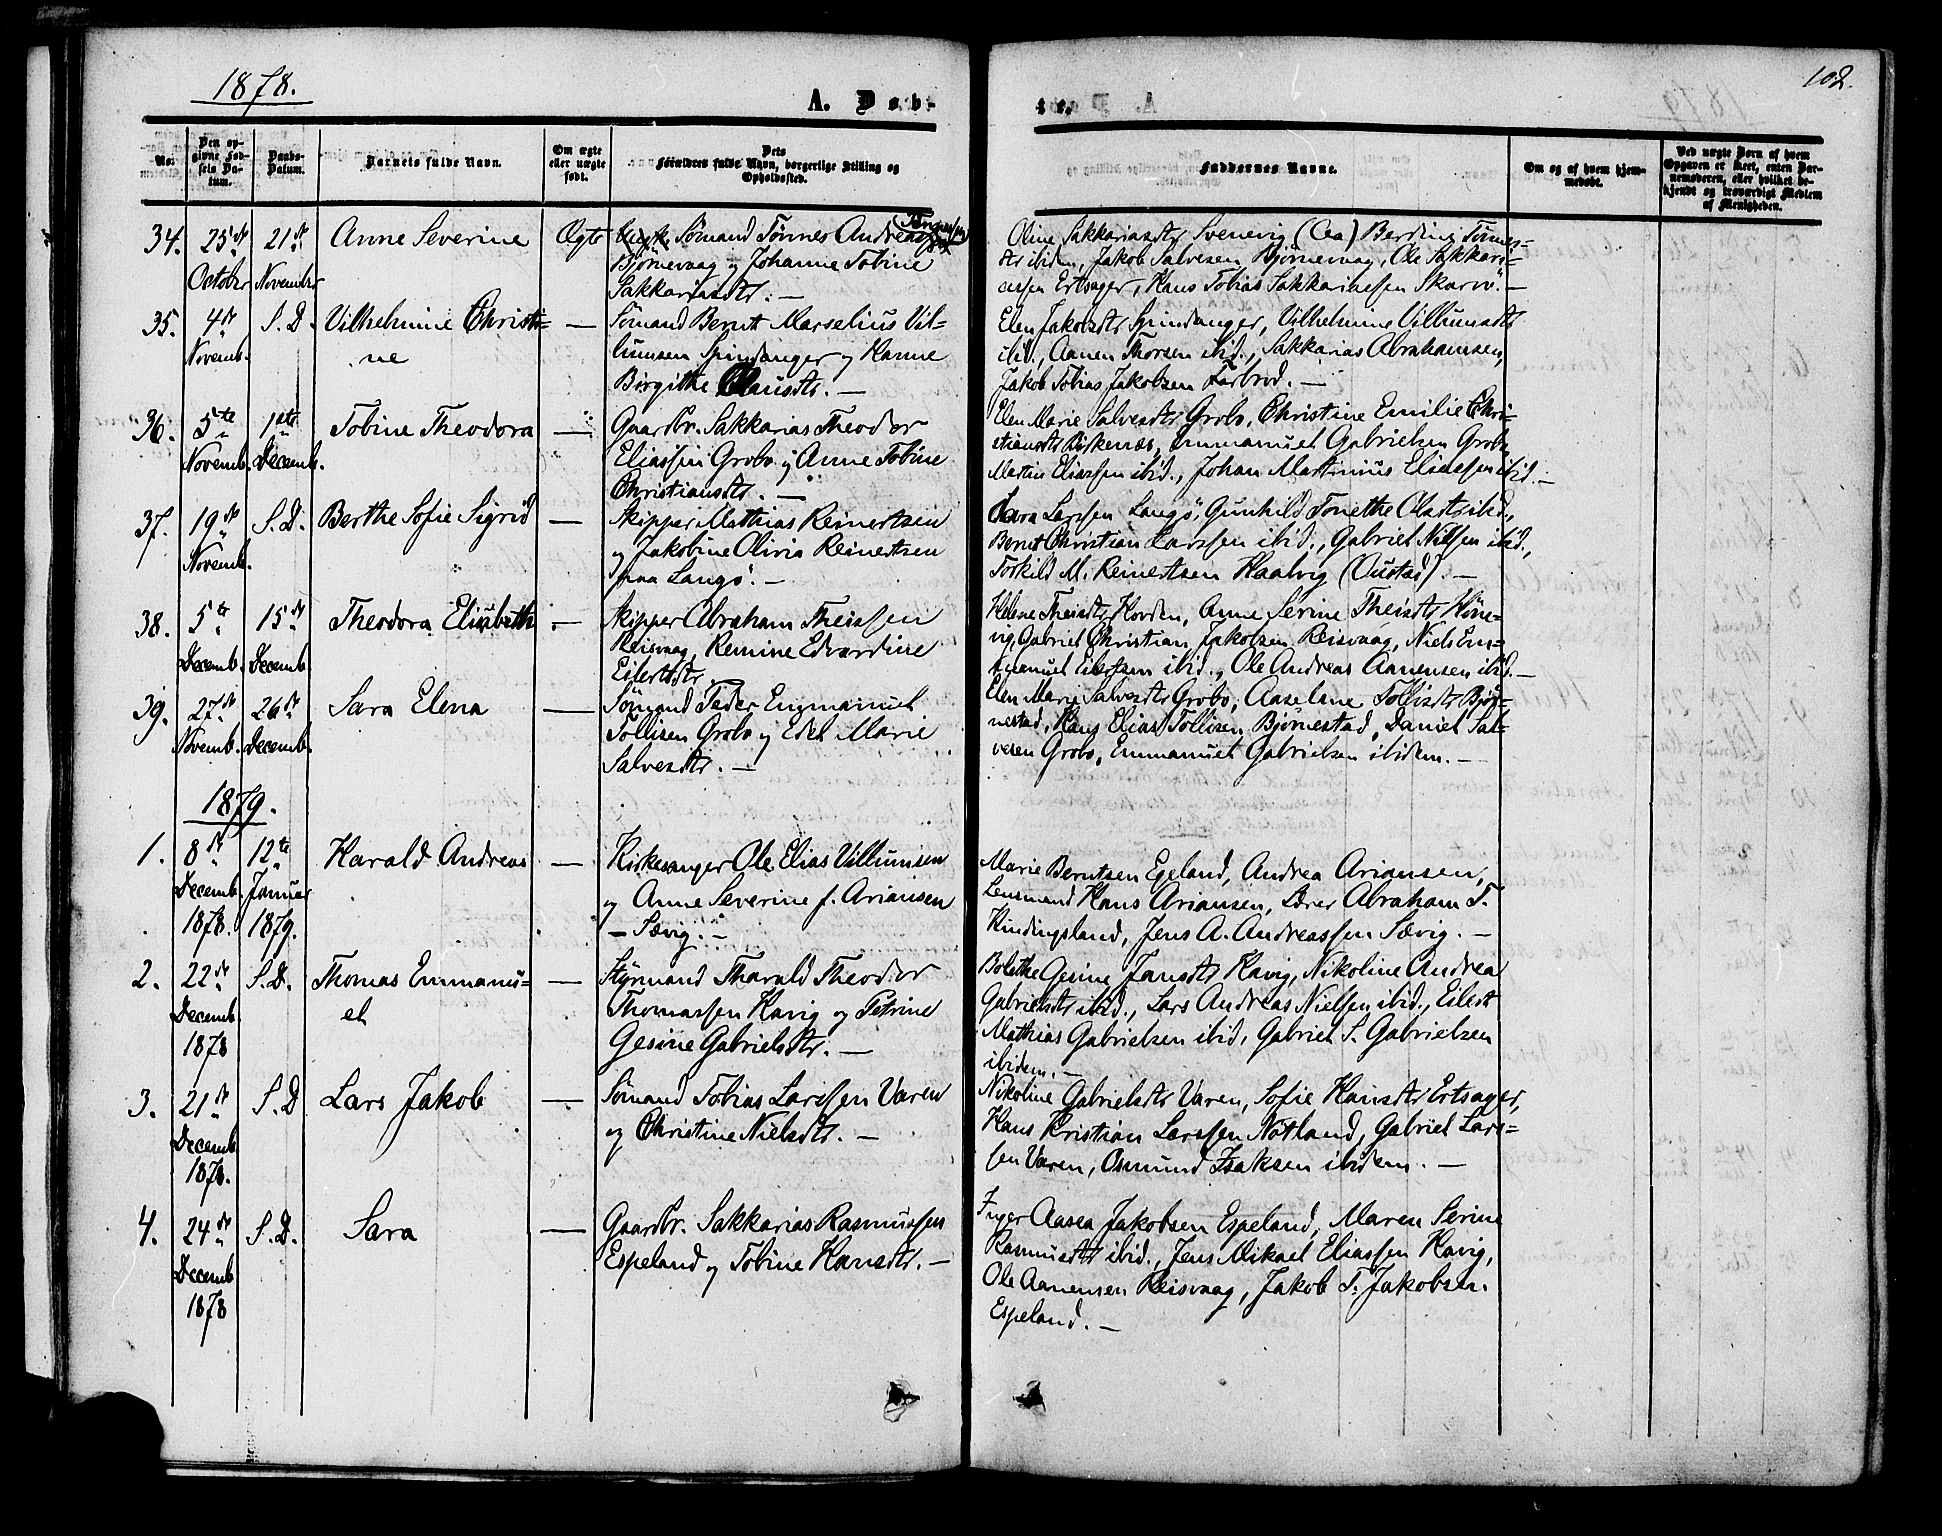 1878.
A. Døb-
te.
102.
No.
Den op-
givne Fød-
sels Da-
tum.
Daabs-
Datum.
Barnets fulde Navn.
Om ægte
eller uægte
født.
Dets
Forældres fulde Navn, borgerlige Stilling og
Opholdssted.
Faddernes Navne.
Om og af hvem hjem-
medøbt.
Ved uægte Børn af hvem
Opgaven er skeet, enten Bar-
nemoderen, eller hvilket be-
kjendt og troværdigt Medlem
af Menigheden.
34. 25de October 21de November Anne Severine Ægte Sømand Tønnes Andreas
Bjørnevaag og Johanne Tobine
Sakkariasdtr. —
Oline Sakkariasdtr Svenevig (Aa) Berdine Tønnes-
dtr ibidem, Jakob Salvesen Bjørnevaag, Ole Sakkari-
assen Ertsager, Hans Tobias Sakkariassen Skarvö. —
35. 4de Novemb. S. D. Vilhelmine Christi-
ne — Sømand Bernt Marselius Vil-
lumsen Spindanger og Hanne
Birgithe Clausdtr. —
Elen Jakobsdtr Spindanger, Vilhelmine Villumsdtr
ibid., Aanen Thorsen ibid., Sakkarias Abrahamsen,
Jakob Tobias Jakobsen Farbrod. —
36. 5te Novemb. 1ste Decemb. Tobine Theodora — Gaardbr. Sakkarias Theodor
Eliassen Grobo og Anne Tobine
Christiansdtr. —
Elen Marie Salvesdtr Grobo, Christine Emilie Chri-
stiansdtr Birkenes, Emmanuel Gabrielsen Grobo,
Martin Eliassen ibid., Johan Martinius Eliassen ibid. —
37. 19de Novemb. S. D. Berthe Sofie Sigrid — Skipper Mathias Reinertsen
og Jakobine Olivia Reinertsen
paa Langö. —
Lars Larssen Langö, Gunhild Tonethe Olsdtr ibid.,
Bernt Christian Larssen ibid., Gabriel Nilsen ibid.,
Torkild M. Reinertsen Haalvig (Oustad). —
38. 5te Decemb. 15de Decemb. Theodora Elisabeth — Skipper Abraham Theissen
Reisvaag, Remine Edvardine
Eilertsdtr
Helene Theisdtr Hovden, Anne Serine Theisdtr Höne-
vig, Gabriel Christian Jakobsen Reisvaag, Niels Em-
manuel Eilertsen ibid., Ole Andreas Aanensen ibid. —
39. 27de Novemb. 26de Decemb. Sara Elena — Sömand Peder Emmanuel
Tollisen Grobo og Edel Marie
Salvesdtr. —
Elen Marie Salvesdtr Grobo, Aaselene Tollisdtr Bjør-
nestad, Hans Elias Tollisen Bjørnestad, Daniel Sal-
vesen Grobo, Emmanuel Gabrielsen ibidem. —
1879.
1. 8de Decemb. 1878. 12te Januar 1879. Harald Andreas — Kirkesanger Ole Elias Villumsen
og Anne Severine f. Ariansen
— Sævig. —
Marie Berntsen Egeland, Andrea Ariansen,
Lensmand Hans Ariansen, Lærer Abraham T.
Kindingsland, Jens A. Andreassen Sævig. —
2. 22de Decemb. 1878 S. D. Thomas Emmanu-
el — Styrmand Tharald Theodor
Thomassen Havig og Petrine
Gesine Gabrielsdtr. —
Bolethe Gesine Jansdtr Havig, Nikoline Andrea
Gabrielsdtr ibid., Lars Andreas Nielsen ibid., Eilert
Mathias Gabrielsen ibid, Gabriel S. Gabrielsen
ibidem. —
3. 21de Decemb. 1878. S. D Lars Jakob — Sömand Tobias Larssen Varen
og Christine Nielsdtr. —
Nikoline Gabrielsdtr Varen, Sofie Hansdtr Ertsager,
Hans Kristian Larssen Nötland, Gabriel Lars-
sen Varen, Osmund Isaksen ibidem. —
4. 24de Decemb 1878 S. D. Sara — Gaardbr. Sakkarias Rasmussen
Espeland og Tobine Hansdtr. —
Inger Aasea Jakobsen Espeland, Maren Serine
Rasmusdtr ibid., Jens Mikael Eliassen Havig,
Ole Aanensen Reisvaag, Jakob T. Jakobsen
Espeland. —